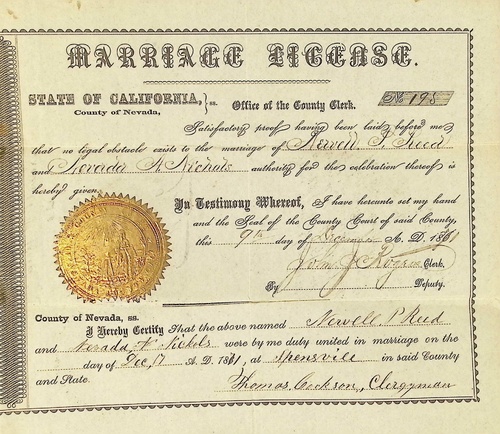 MARRIAGE LICENSE.
STATE OF CALIFORNIA, } ss. Office of the County Clerk. No 198
County of Nevada,
Satisfactory proof having been laid before me
that no legal obstacle exists to the marriage of Newell P. Reed
and Nevada A. Nichols authority for the celebration thereof is
hereby given.
In Testimony Whereof, I have hereunto set my hand
and the Seal of the County Court of said County,
this 9th day of December A. D. 1861
John J Clerk.
By Deputy.
County of Nevada, ss.
I Hereby Certify That the above named Newell P Reed
and Nevada Nichols were by me duly united in marriage on the
day of Dec, 17 A. D. 1861, at in said County
and State. Thomas Cookson, Clergyman